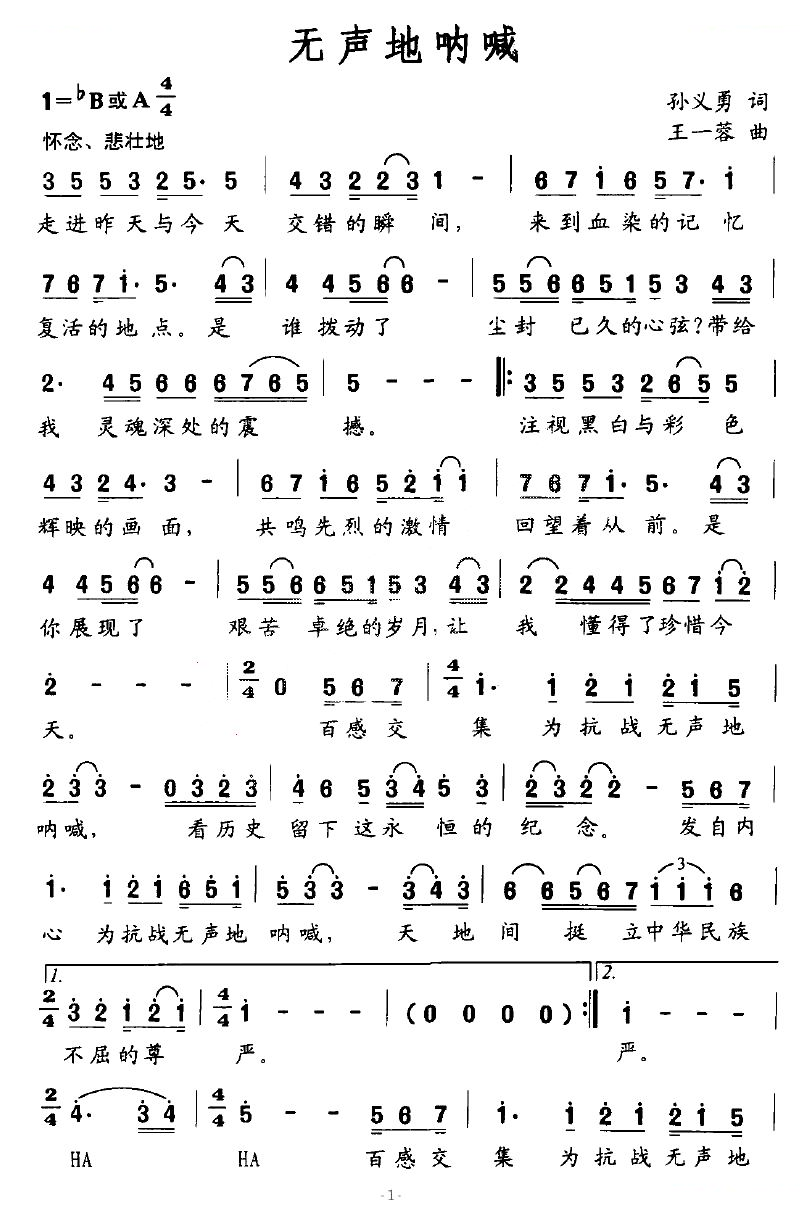 无声地呐喊
1=♭B或A 4/4
孙义勇 词
怀念、悲壮地
王一蓉 曲
3 5 5 3 2 5· 5 | 4 3 2 2 3 1 - | 6 7 1 6 5 7· 1 |
走进昨天与今天 交错的瞬间, 来到血染的记忆
7 6 7 1· 5· 4 3 | 4 4 5 6 6 - | 5 5 6 6 5 1 5 3 4 3 |
复活的地点。是 谁拨动了 尘封 已久的心弦?带给
2· 4 5 6 6 6 7 6 5 | 5 - - - ‖: 3 5 5 3 2 6 5 5 |
我 灵魂深处的震 撼。 注视黑白与彩色
4 3 2 4· 3 - | 6 7 1 6 5 2 1 1 | 7 6 7 1· 5· 4 3 |
辉映的画面, 共鸣先烈的激情 回望着从前。是
4 4 5 6 6 - | 5 5 6 6 5 1 5 3 4 3 | 2 2 4 4 5 6 7 1 2 |
你展现了 艰苦 卓绝的岁月,让 我 懂得了珍惜今
2 - - - | 2/4 0 5 6 7 | 4/4 1· 1 2 1 2 1 5 |
天。 百感交 集 为抗战无声地
2 3 3 - 0 3 2 3 | 4 6 5 3 4 5 3 | 2 3 2 2 - 5 6 7 |
呐喊, 看历史 留下这永恒的 纪念。 发自内
1· 1 2 1 6 5 1 | 5 3 3 - 3 4 3 | 6 6 5 6 7 1 1 1 6 |
3
心 为抗战无声地 呐喊, 天地间 挺 立中华民族
1. 2.
2/4 3 2 1 2 1 | 4/4 1 - - - | (0 0 0 0) :‖ 1 - - - |
不屈的尊 严。 严。
2/4 4· 3 4 | 4/4 5 - - 5 6 7 | 1· 1 2 1 2 1 5 |
HA HA 百感交 集 为抗战无声地
-1-